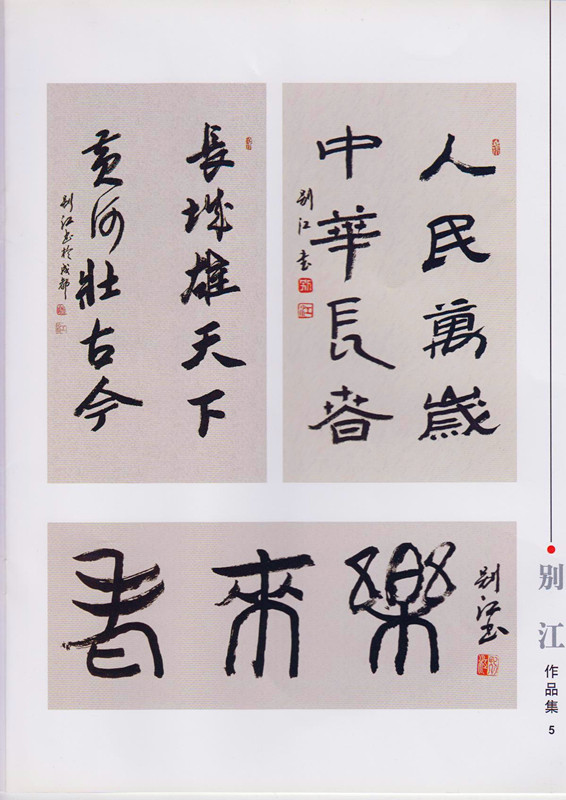 長城雄天下
黄河壯古今
别江书於成都
人民萬歲
中華長春
别江书
書來樂
别江书
别江
作品集
5